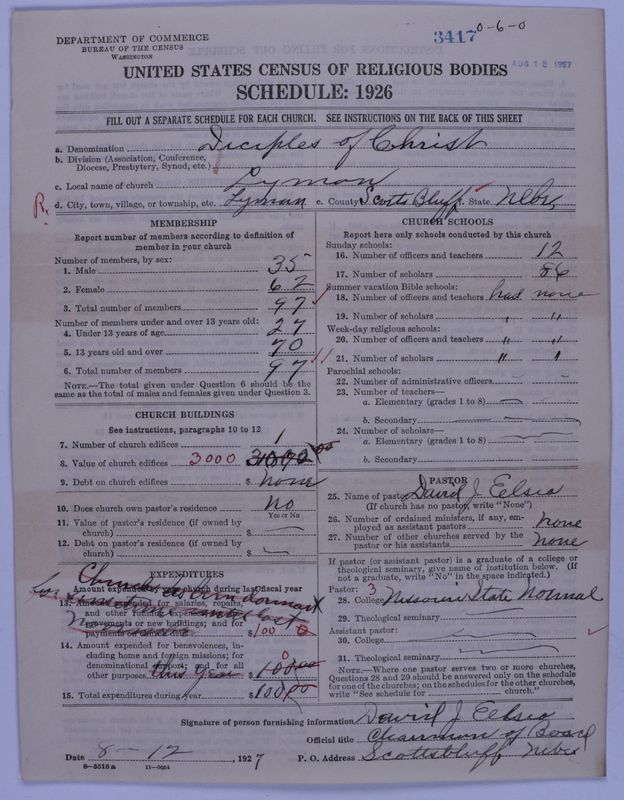 3417 0-6-0
AUG 18 1927
DEPARTMENT OF COMMERCE
BUREAU OF THE CENSUS
WASHINGTON
UNITED STATES CENSUS OF RELIGIOUS BODIES
SCHEDULE: 1926
FILL OUT A SEPARATE SCHEDULE FOR EACH CHURCH. SEE INSTRUCTIONS ON THE BACK OF THIS SHEET
a. Denomination Diciples of Christ
b. Division (Association, Conference,
Diocese, Presbytery, Synod, etc.)
c. Local name of church Lyman
R. d. City, town, village, or township, etc. Lyman e. County Scotts Bluff f. State Nebr
MEMBERSHIP
Report number of members according to definition of
member in your church
Number of members, by sex:
1. Male 35
2. Female 62
3. Total number of members 97
Number of members under and over 13 years old:
4. Under 13 years of age 27
5. 13 years old and over 70
6. Total number of members 97
NOTE.—The total given under Question 6 should be the
same as the total of males and females given under Question 3.
CHURCH BUILDINGS
See instructions, paragraphs 10 to 12
7. Number of church edifices 1
8. Value of church edifices 3000
9. Debt on church edifices $ none
10. Does church own pastor's residence? no
Yes or No
11. Value of pastor's residence (if owned by
church) $
12. Debt on pastor's residence (if owned by
church) $
EXPENDITURES
Church
Amount expended by church during last fiscal year
13. Amount expended for salaries, repairs,
and other running expenses; for
improvements or new buildings; and for
payments $100
14. Amount expended for benevolences, in-
cluding home and foreign missions; for
denominational support; and for all
other purposes this year $ 100
15. Total expenditures during year $100
CHURCH SCHOOLS
Report here only schools conducted by this church
Sunday schools:
16. Number of officers and teachers 12
17. Number of scholars 86
Summer vacation Bible schools:
18. Number of officers and teachers had none
19. Number of scholars " "
Week-day religious schools:
20. Number of officers and teachers " "
21. Number of scholars " "
Parochial schools:
22. Number of administrative officers
23. Number of teachers—
a. Elementary (grades 1 to 8)
b. Secondary
24. Number of scholars—
a. Elementary (grades 1 to 8)
b. Secondary
PASTOR
25. Name of pastor David J.
(If church has no pastor, write "None")
26. Number of ordained ministers, if any, em-
ployed as assistant pastors none
27. Number of other churches served by the
pastor or his assistants none
If pastor (or assistant pastor) is a graduate of a college or
theological seminary, give name of institution below. (If
not a graduate, write "No" in the space indicated.)
Pastor: 3
28. College Missouri State Normal
29. Theological seminary
Assistant pastor:
30. College
31. Theological seminary
NOTE.—Where one pastor serves two or more churches,
Questions 28 and 29 should be answered only on the schedule
for one of the churches; on the schedules for the other churches,
write "See schedule for church."
Signature of person furnishing information David J.
Official title Chairman of Board
Date 8-12, 1927 P. O. Address Scottsbluff Nebr
8—5518a 11—9024